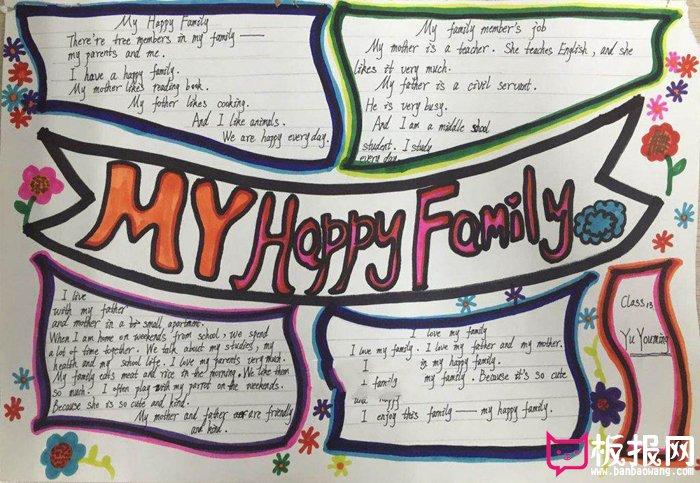 My Happy Family
There're tree members in my family —
my parents and me.
I have a happy family.
My mother likes reading book.
My fother likes cooking.
And I like animals.
We are happy everyday.
My family member's job
My mother is a teacher. She teaches English, and she
likes it very much.
My father is a civil servant.
He is very busy.
And I am a middle school
student. I study
every day
MY Happy Family
I live
with my father
and mother in a small apartment.
When I am home on weekends from school, we spend
a lot of time together. We talk about my studies, my
health and my school life. I love my parents very much.
My family eats meat and rice in the morning. We like them
so much. I often play with my parrot on the weekends.
Because she is so cute and kind.
My mother and father are friendly
and kind.
I love my family
I love my family. I love my father and my mother.
I is my happy family.
I family my family. Because it's so cute
I enjoy this family — my happy family.
Class 13
Yu Youming
板报网
www.banbaowang.com